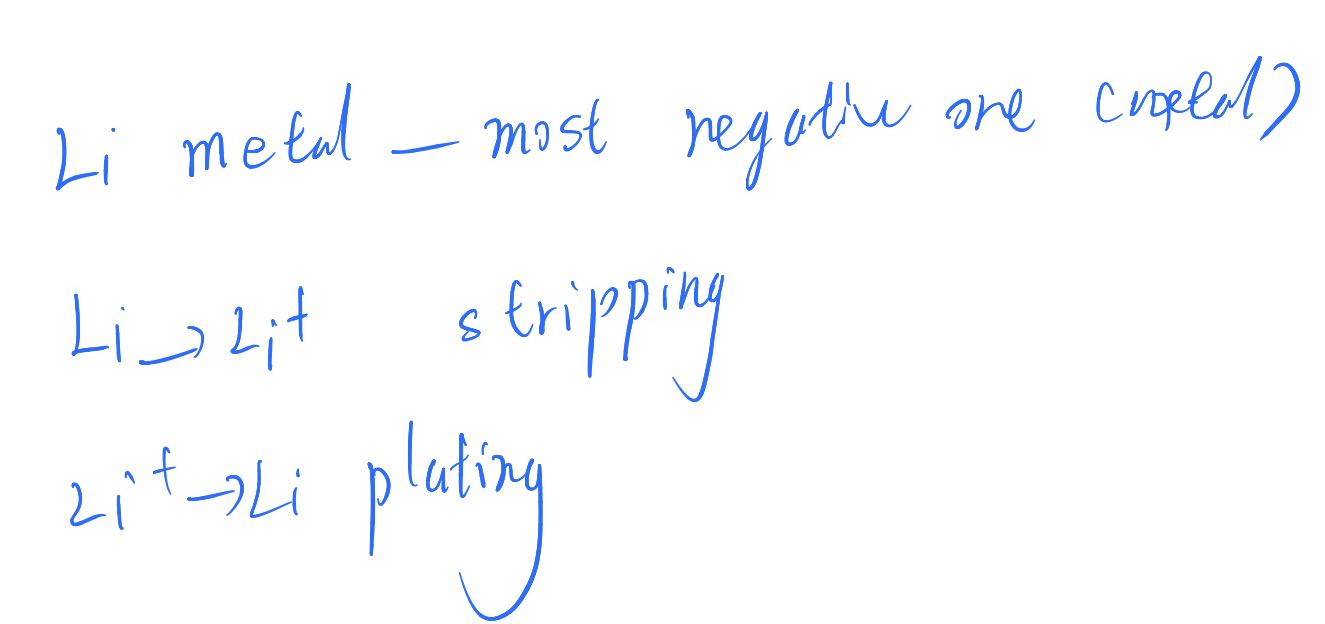 Li metal — most negative one (metal)
Li → Li⁺ stripping
Li⁺ → Li plating